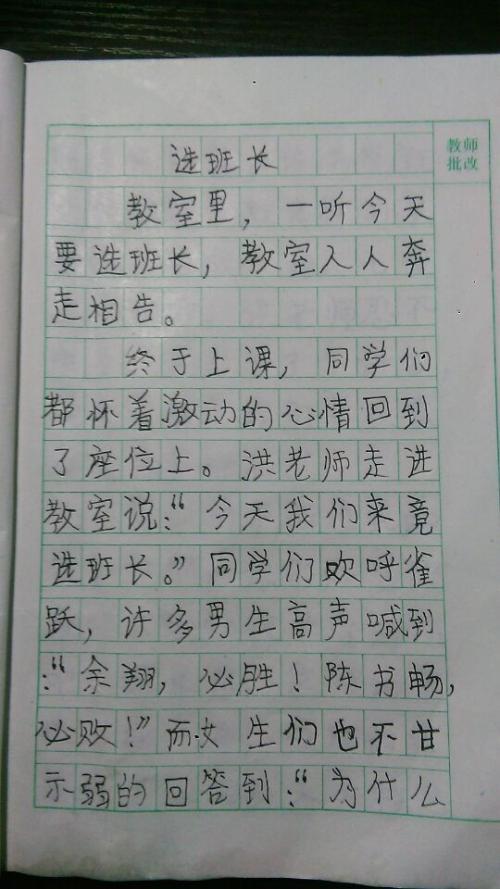 选班长
教师
批改
教室里，一听今天
要选班长，教室入人奔
走相告。
终于上课，同学们
都怀着激动的心情回到
了座位上。洪老师走进
教室说：“今天我们来竟
选班长。”同学们欢呼雀
跃，许多男生高声喊到
：“余翔，必胜！陈书畅，
必败！”而女生们也不甘
示弱的回答到：“为什么